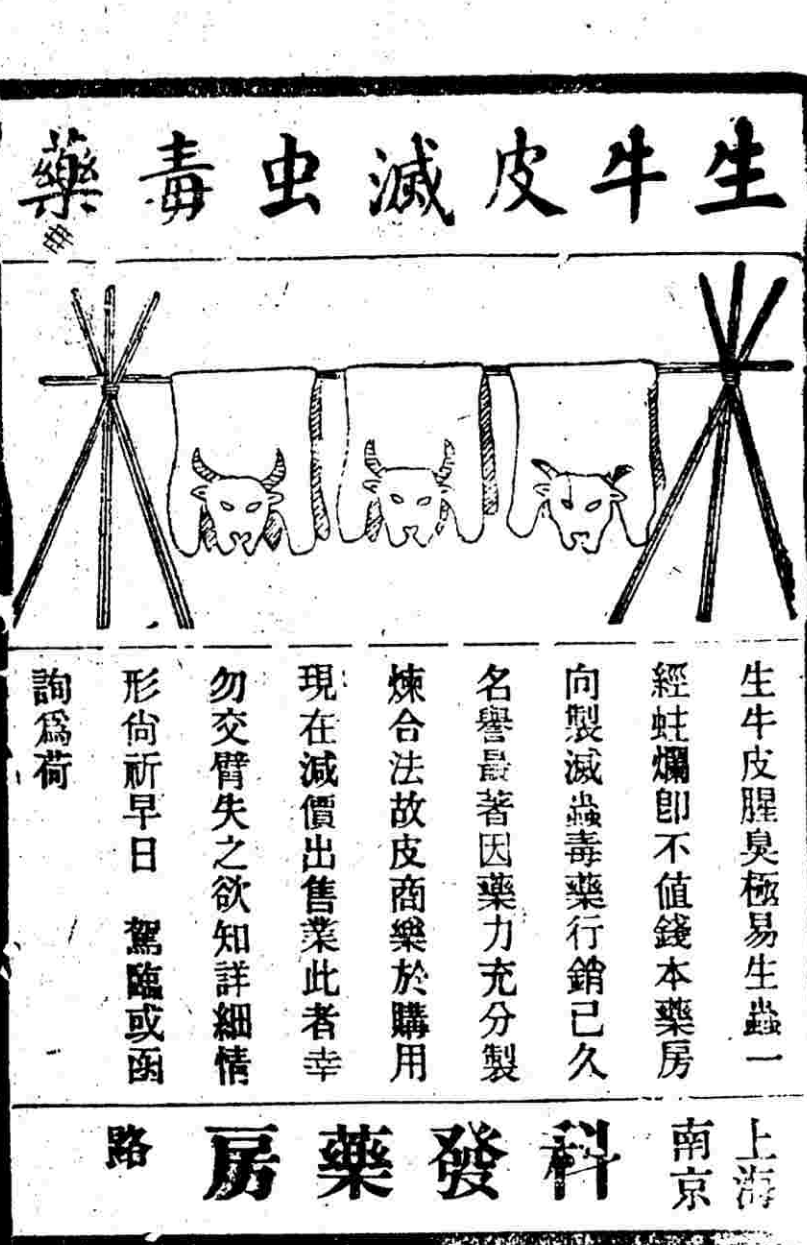 生牛皮滅虫毒藥
生牛皮腥臭極易生蟲一
經蛀爛卽不值錢本藥房
向製滅蟲毒藥行銷已久
名譽最著因藥力充分製
煉合法故皮商樂於購用
現在減價出售業此者幸
勿交臂失之欲知詳細情
形尙祈早日　駕臨或函
詢爲荷
上海
南京
路
科發藥房